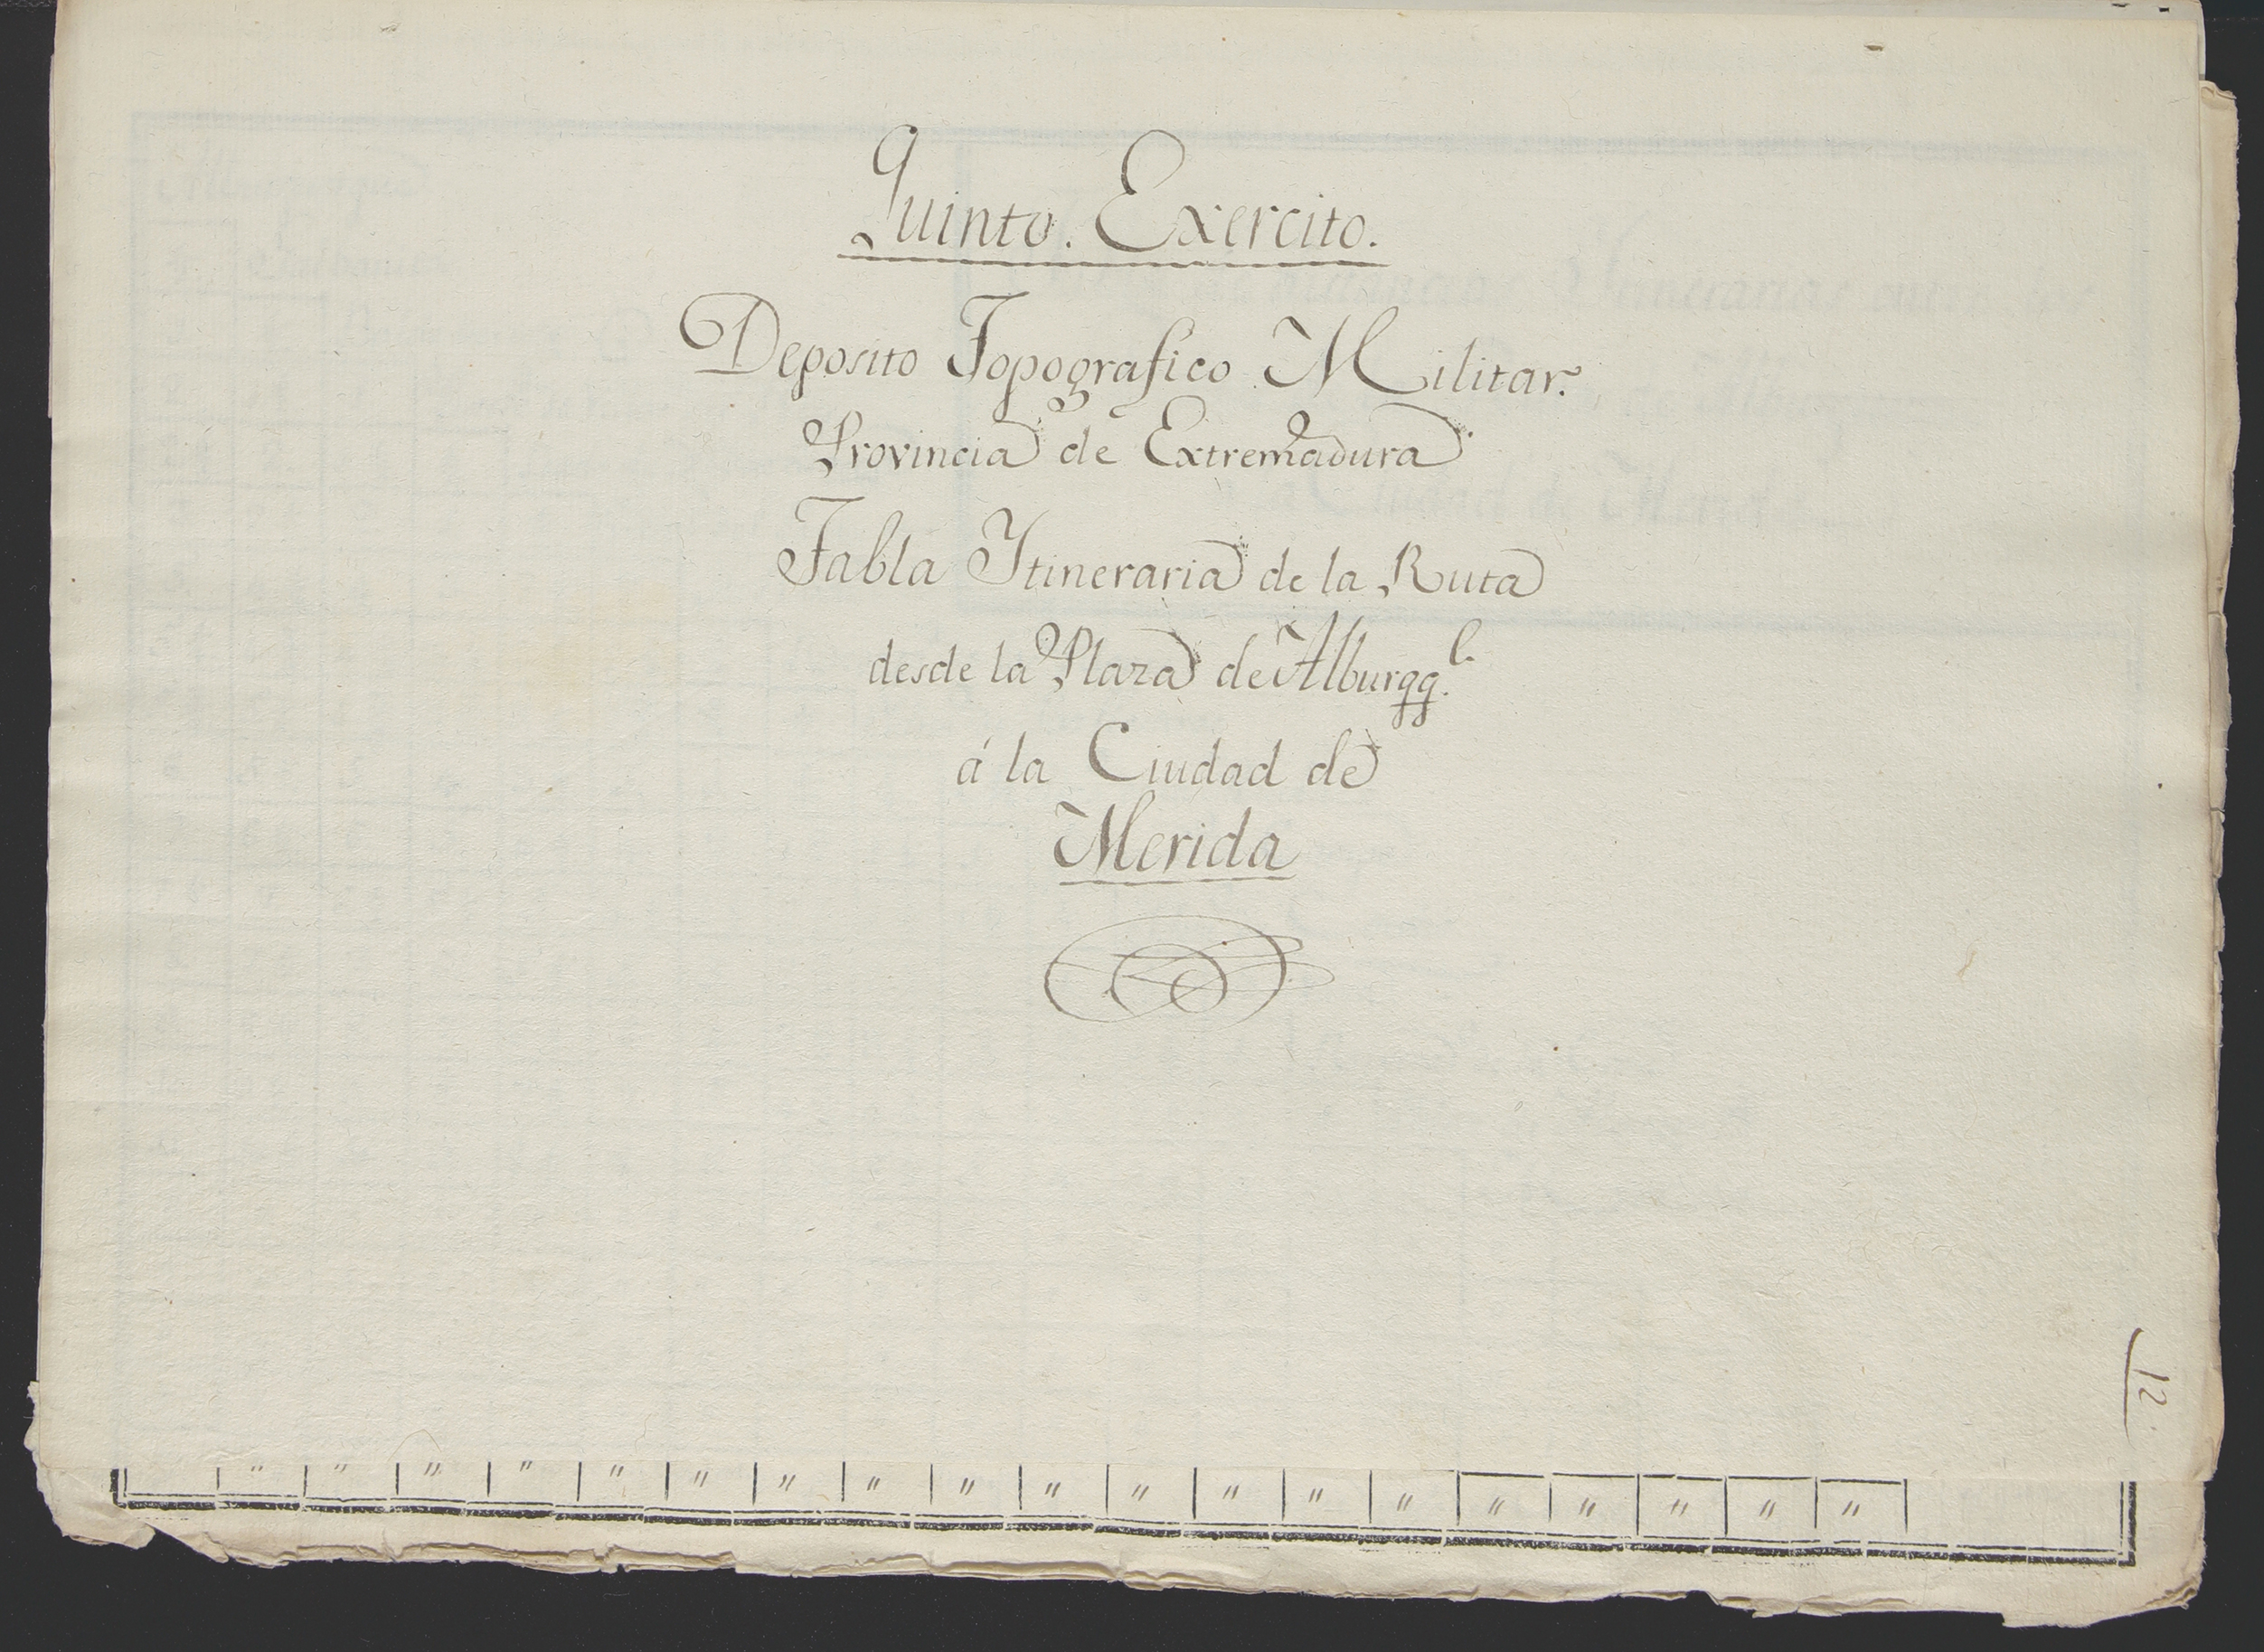 Quinto. Exercito.
Deposito Topografico Militar.
Provincia de Extremadura.
Tabla Ytineraria de la Ruta
desde la Plaza de Alburqq.l
á la Ciudad de
Merida
12.
" " " " " " " " " " " " " " " " " " "